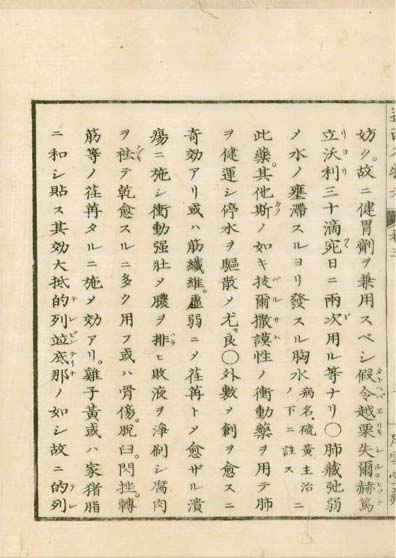 妨ク。故ニ健胃劑ヲ兼用スベシ假令越栗失爾赫篤
立沃利三十滴宛日ニ兩次用ル等ナリ〇肺藏弛弱
メ水ノ壅滯スルヨリ發スル胸水病名、硫黄主治ニノ下ニ註ス
此藥。其他斯ノ如キ拔爾撒謨性ノ衝動藥ヲ用テ肺
ヲ健運シ停水ヲ驅散メ尤良〇外敷メ創ヲ愈スニ
奇効アリ或ハ筋纖維。虛弱ニメ荏苒トメ愈ザル潰
瘍ニ施シ衝動强壮メ膿ヲ排ヒ敗液ヲ淨刷シ腐肉
ヲ祛テ乾愈スルニ多ク用フ或ハ骨傷。脫臼。閃挫。轉
筋等ノ荏苒タルニ施メ効アリ。雞子黃或ハ家猪脂
ニ和シ貼ス其効大抵的列竝底那ノ如シ故ニ的列